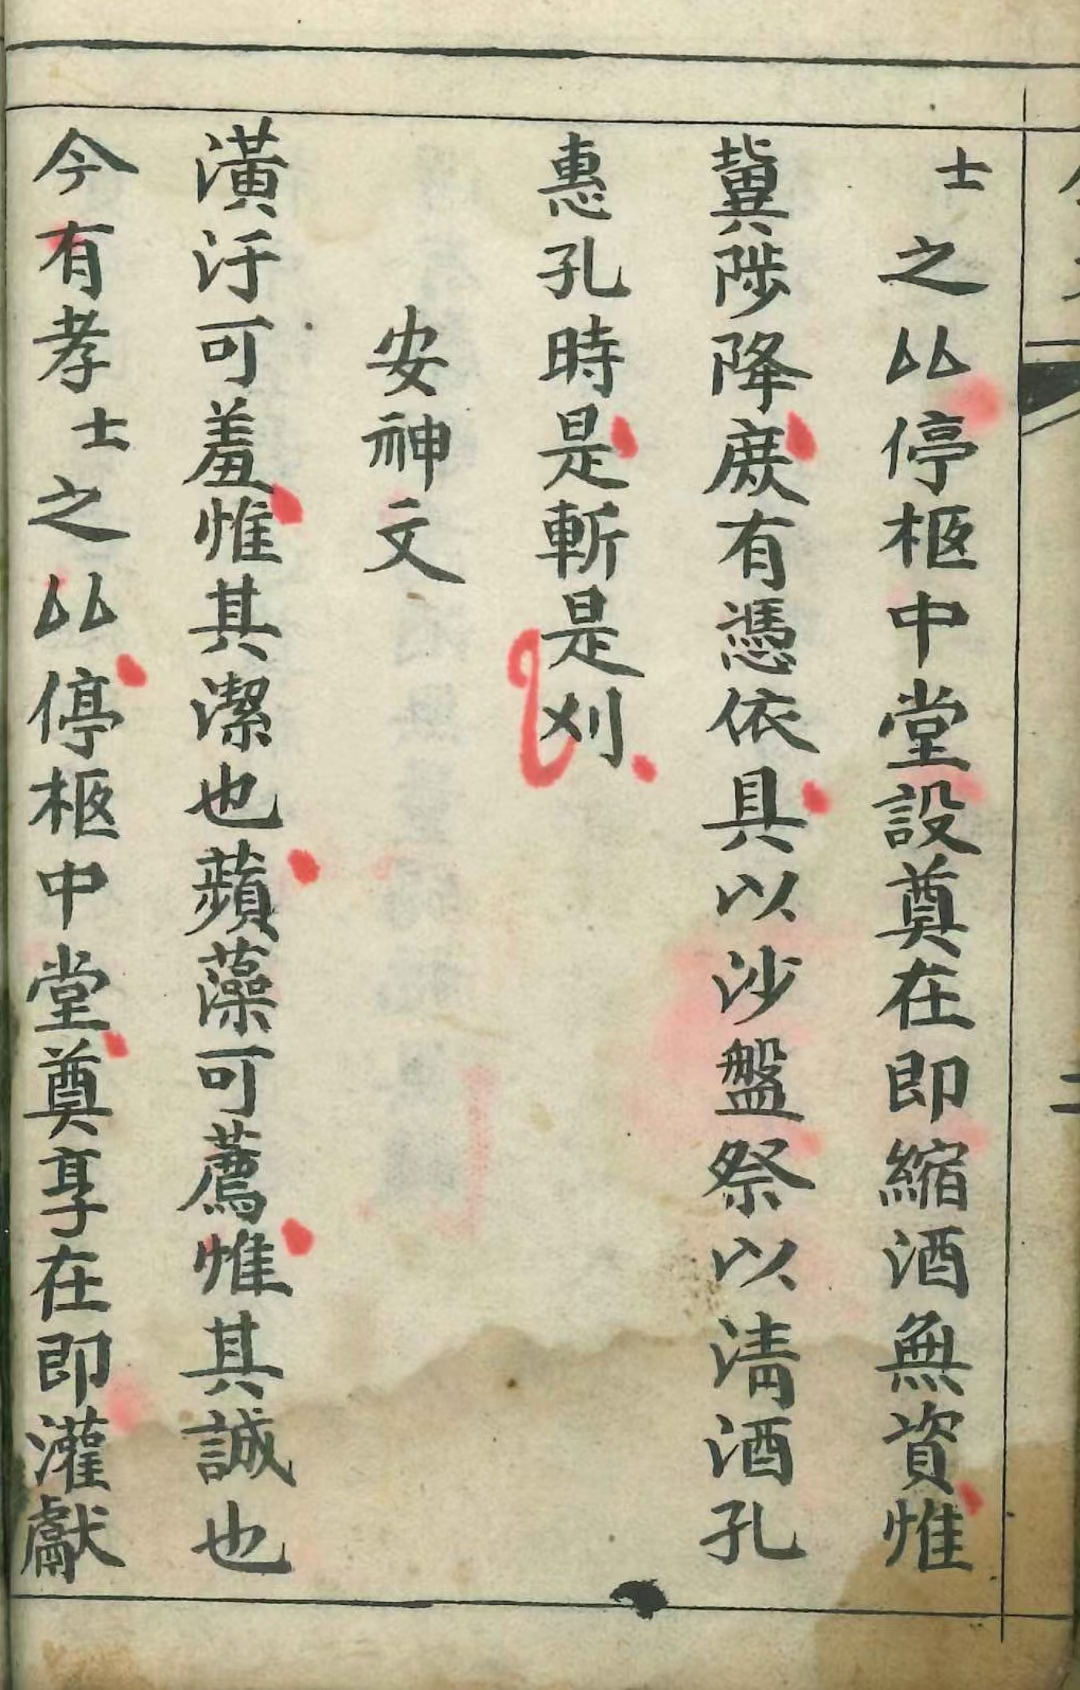 士之厸停柩中堂設奠在即縮酒無資惟
冀陟降庶有憑依具以沙盤祭以清酒孔
惠孔時是斬是刈
安神文
潢汙可羞惟其潔也蘋藻可薦惟其誠也
今有孝士之厸停柩中堂奠享在即灌獻